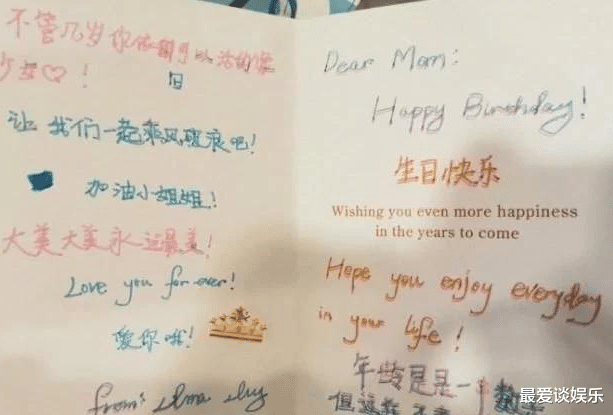 不管几岁你依旧可以活的像
少女♡!
旧
让我们一起乘风破浪吧!
加油小姐姐!
大美大美永远最美!
Love you for ever!
爱你哦!
from:
Dear Mom:
Happy Birthday!
生日快乐
Wishing you even more happiness
in the years to come
Hope you enjoy everyday
in your life!
年龄是是一串数
但这
最爱谈娱乐